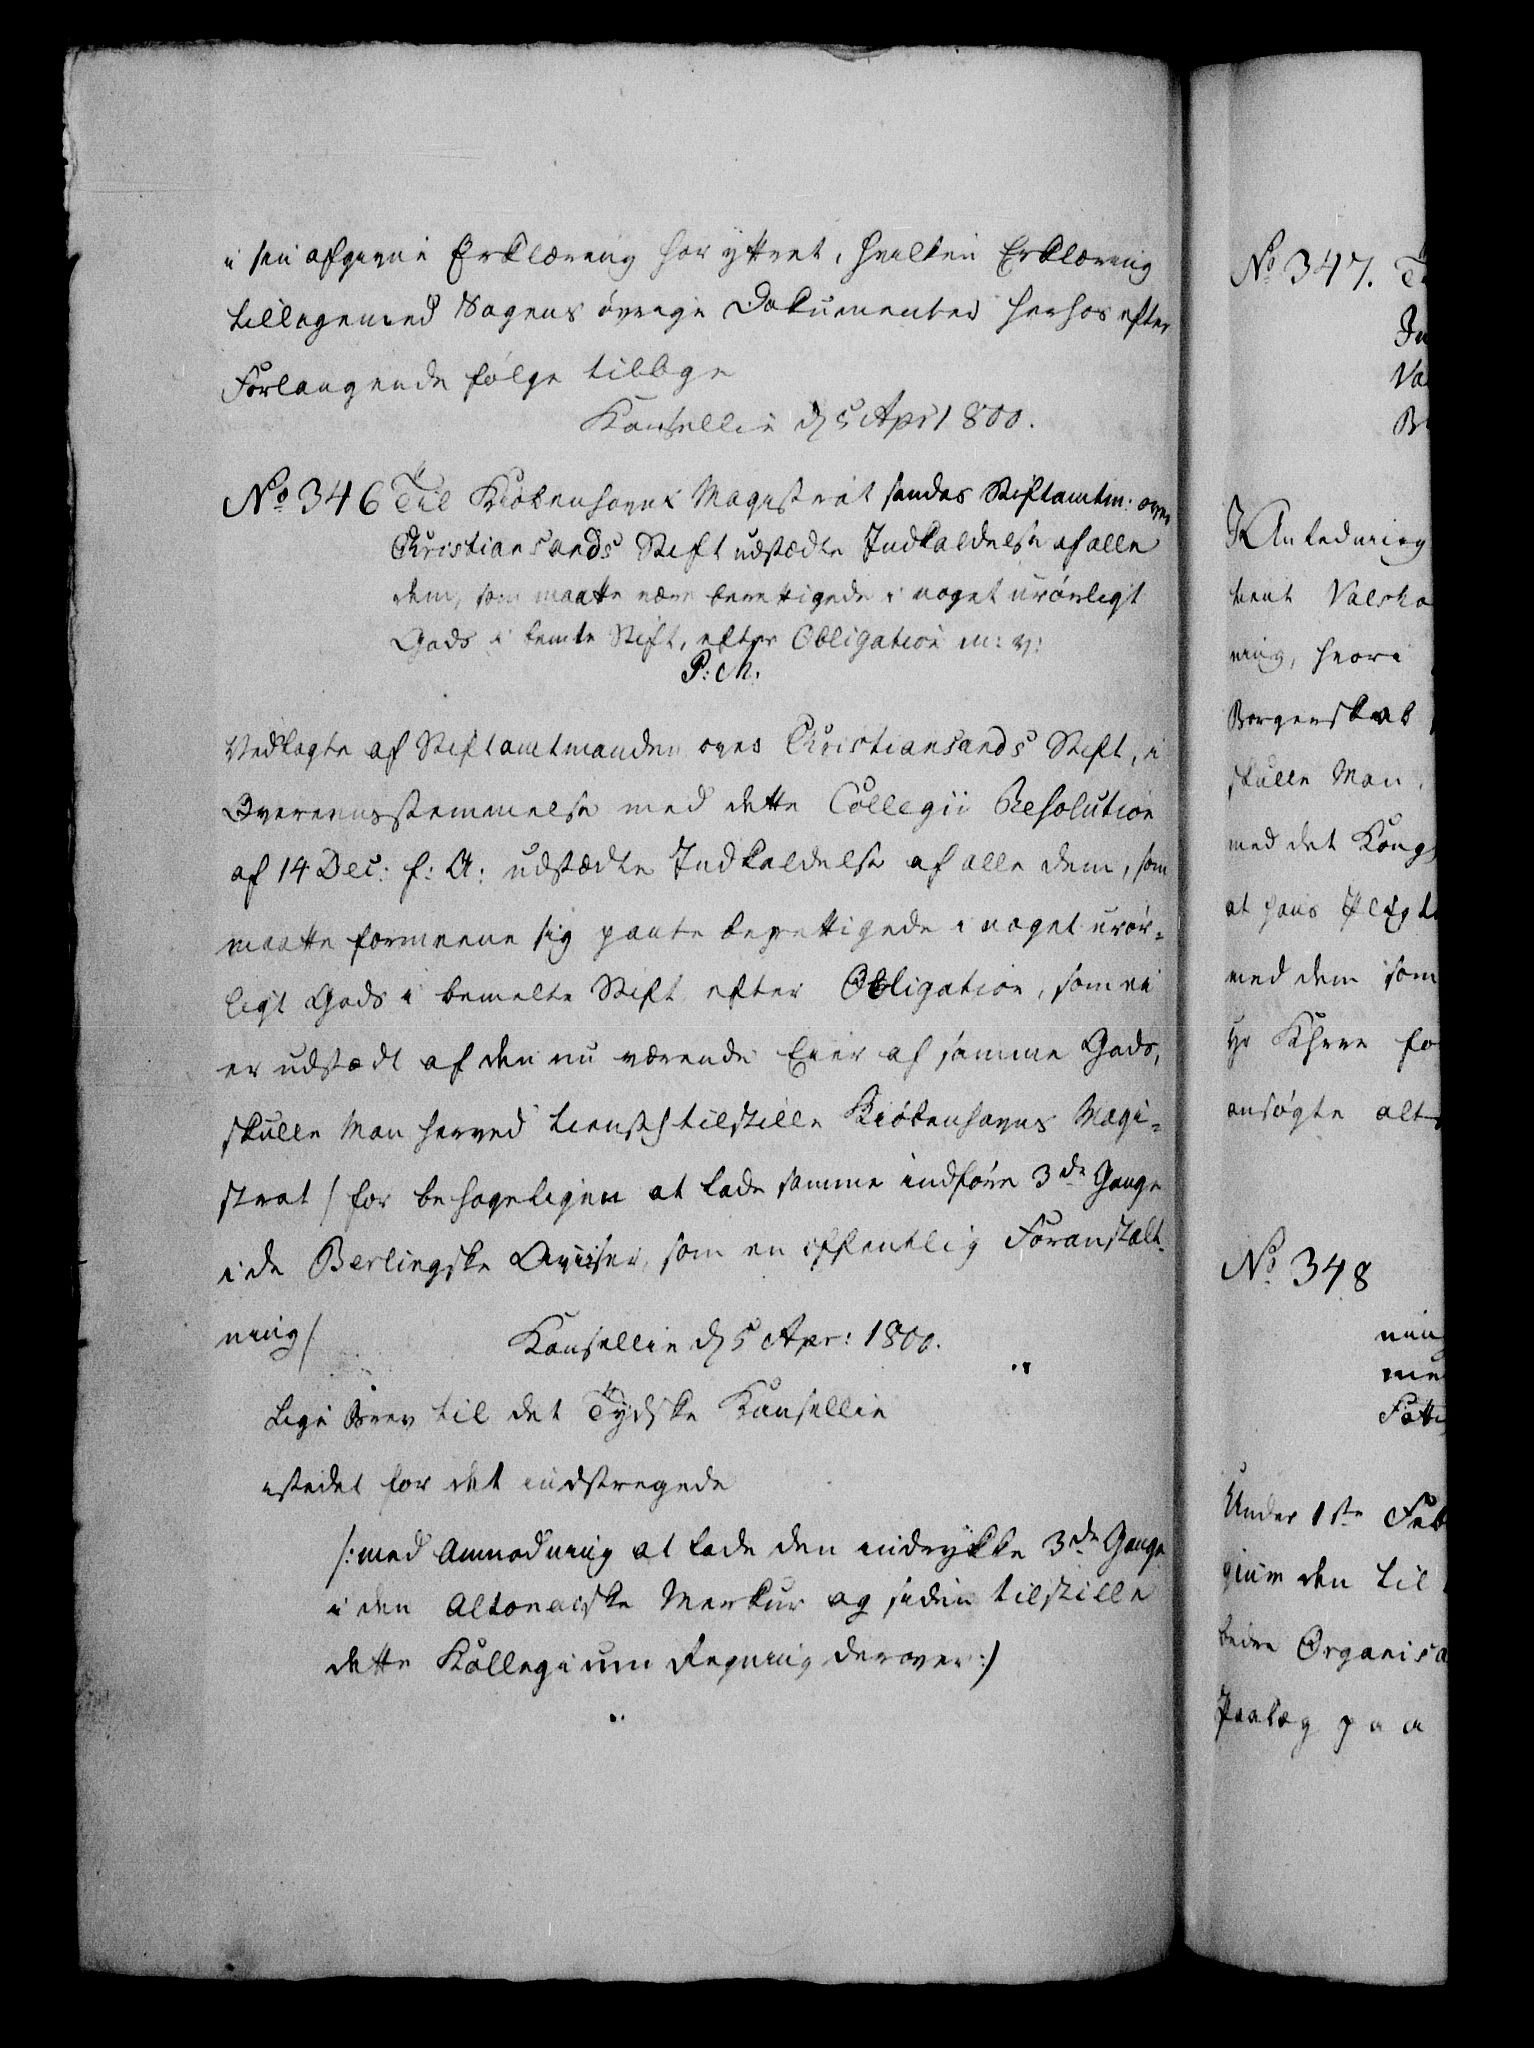 i sin afgivne Erklæring har yttret, hvilken Erklæring
tilligemed Sagens øvrige Dokumenter herhos efter
Forlangende følge tilbage
Kancellie d. 5 Apr 1800.
No 346 Til Kiøbenhavns Magistrat sendes Stiftamtm: over
Christiansands Stift udstædte Indkaldelse af alle
dem, som maatte være berettigede i noget urørligt
Gods i bemte Stift, efter Obligation m: v:
P: M.
Vedlagte af Stiftamtmanden over Christiansands Stift, i
Overeensstemmelse med dette Collegii Resolution
af 14 Dec: f: A: udstædte Indkaldelse af alle dem, som
maatte formeene sig pante berettigede i noget urør=
ligt Gods i bemelte Stift efter Obligation, som ei
er udstædt af den nu værende Eier af samme Gods,
skulle Man herved tienstl tilstille Kiøbenhavns Magi=
strat / for behageligen at lade samme indføre 3de Gange
i de Berlingske Aviser, som en offentlig Foranstalt-
ning /
Kancellie d. 5 Apr: 1800.
Lige Brev til det Tydske Kancellie
istedet for det indstregede
/: med Anmodning at lade den indrykke 3de Gange
i den Altonaiske Merkur og siden tilstille
dette Kollegium Regning derover :/
No 347. T
In
Va
B
I Anledning
ning, hvori
Borgerskab
skulle Man
med det Kong
at hans Pligt
med dem som
hr Khrre fo
ansøgte alt
No 348
ning
me
Fatti
Under 1ste Feb
gium den til
bedre Organisa
Paalæg paa